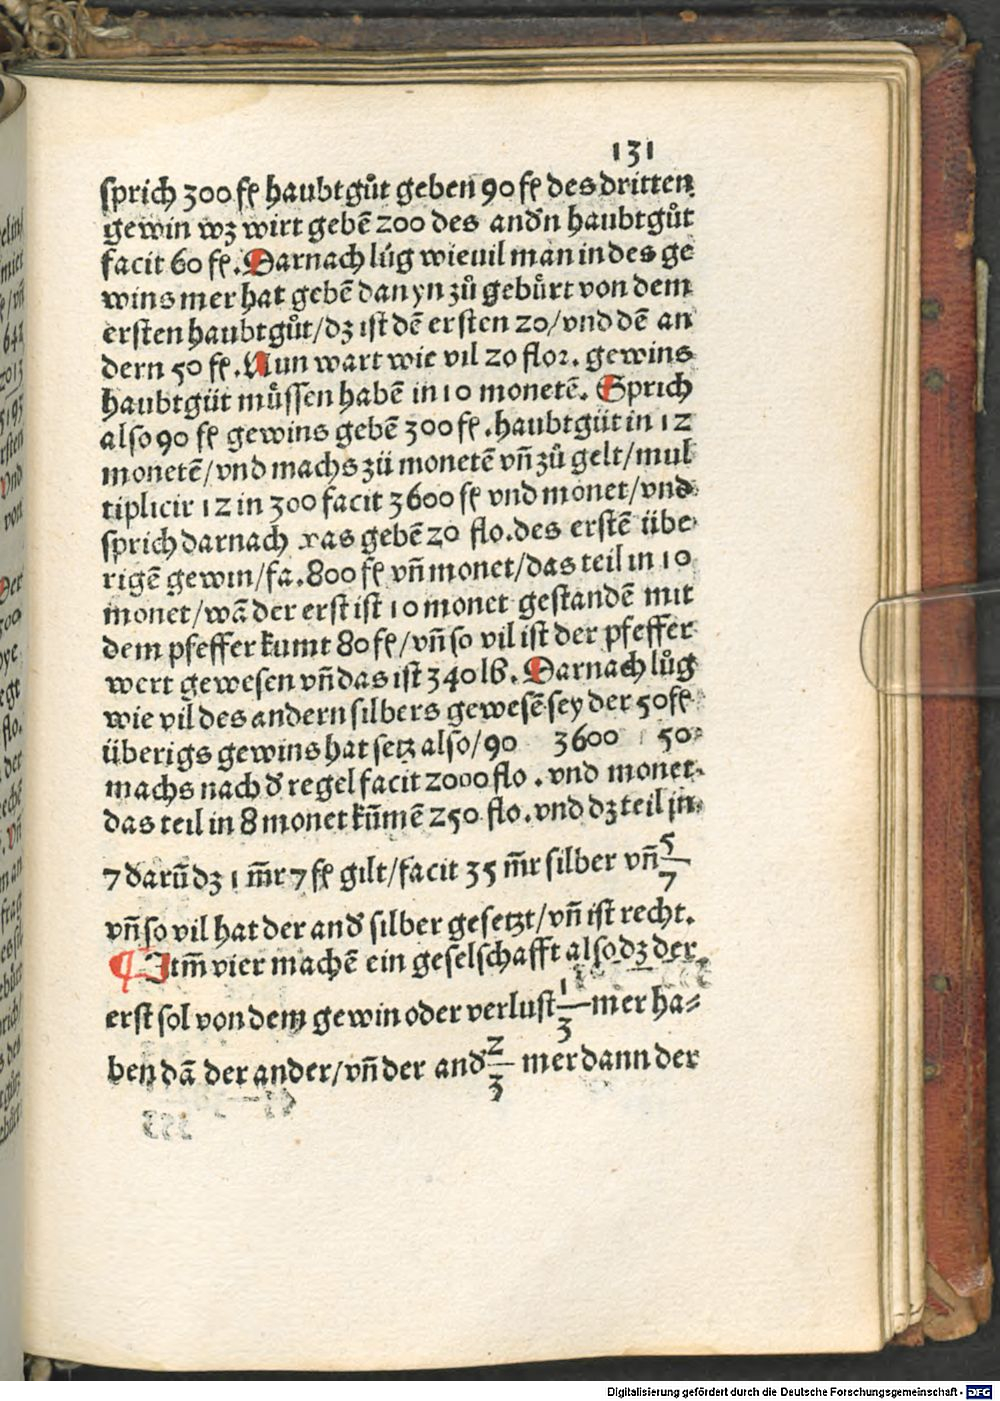 131
sprich 300 fl haubtgůt geben 90 fl des dritten
gewin wz wirt gebē 200 des andn haubtgůt
facit 60 fl. Darnach lůg wieuil man in des ge
wins mer hat gebē dan yn zů gebůrt von dem
ersten haubtgůt/dz ist dē ersten 20/vnd dē an
dern 50 fl. Nun wart wie vil 20 flor. gewins
haubtgüt müssen habē in 10 monetē. Sprich
also 90 fl gewins gebē 300 fl. haubtgüt in 12
monetē/vnd machs zü monetē vñ zů gelt/mul
tiplicir 12 in 300 facit 3600 fl vnd monet/vnd
sprich darnach was gebē 20 flo. des erstē übe
rigē gewin/fa. 800 fl vñ monet/das teil in 10
monet/wā der erst ist 10 monet gestandē mit
dem pfeffer kumt 80 fl/vñ so vil ist der pfeffer
wert gewesen vñ das ist 340 lb. Darnach lůg
wie vil des andern silbers gewesē sey der 50 fl
überigs gewins hat setz also/90 3600 50
machs nach d̄ regel facit 2000 flo. vnd monet
das teil in 8 monet kūmē 250 flo. vnd dz teil jn
7 darū dz 1 m̄r 7 fl gilt/facit 35 m̄r silber vñ 5/7
vñ so vil hat der and̄ silber gesetzt/vñ ist recht.
¶ Itm̄ vier machē ein geselschafft also dz der
erst sol von dem gewin oder verlust 1/3 mer ha⸗
ben dā der ander/vñ der and̄ 2/3 mer dann der
Digitalisierung gefördert durch die Deutsche Forschungsgemeinschaft - DFG